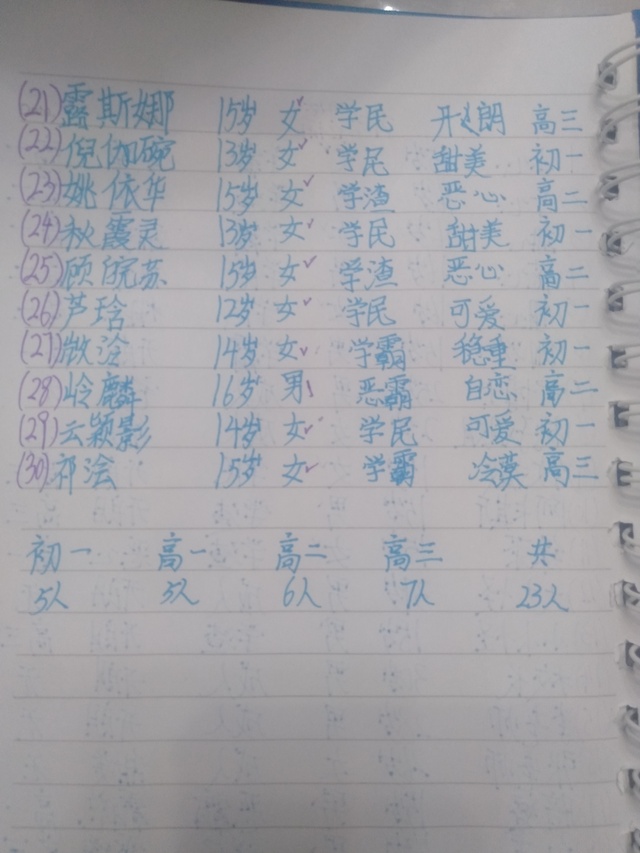 (21)露斯娜 15岁 女✓ 学民 开朗 高三
(22)倪伽碗 13岁 女✓ 学民 甜美 初一
(23)姚依华 15岁 女✓ 学渣 恶心 高二
(24)秋霞灵 13岁 女✓ 学民 甜美 初一
(25)顾皖苏 15岁 女✓ 学渣 恶心 高二
(26)芦琀 12岁 女✓ 学民 可爱 初一
(27) 14岁 女✓ 学霸 稳重 初一
(28)岭麟 16岁 男 恶霸 自恋 高二
(29)云颖影 14岁 女✓ 学民 可爱 初一
(30)祁浍 15岁 女✓ 学霸 冷漠 高三
初一 高一 高二 高三 共
5人 5人 6人 7人 23人